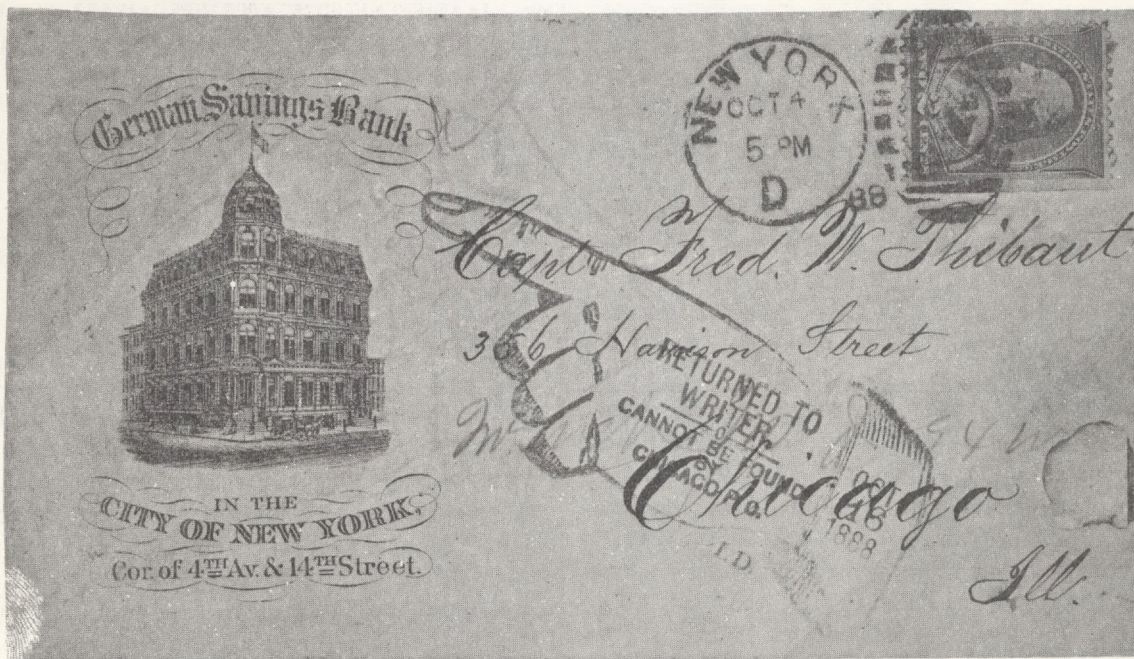 German Savings Bank
IN THE
CITY OF NEW YORK,
Cor. of 4TH Av. & 14TH Street.
NEW YORK
OCT 4
5 PM
D
88
Capt Fred. W. Thibaut
Harrison Street
Chicago
Ill.
RETURNED TO
WRITER
CANNOT BE FOUND
CHICAGO, P.O.
OCT
16
1888